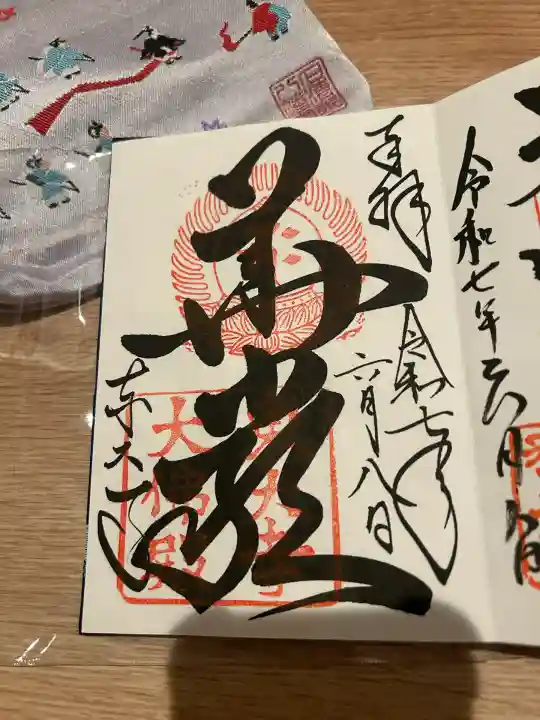 奉拝
令和七年
六月八日
華厳
東大寺
東大寺
大佛殿
令和七年六月